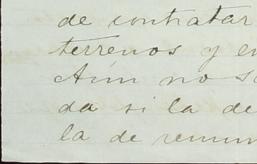 de contratar
terrenos y
Aún no
da si la de
la de